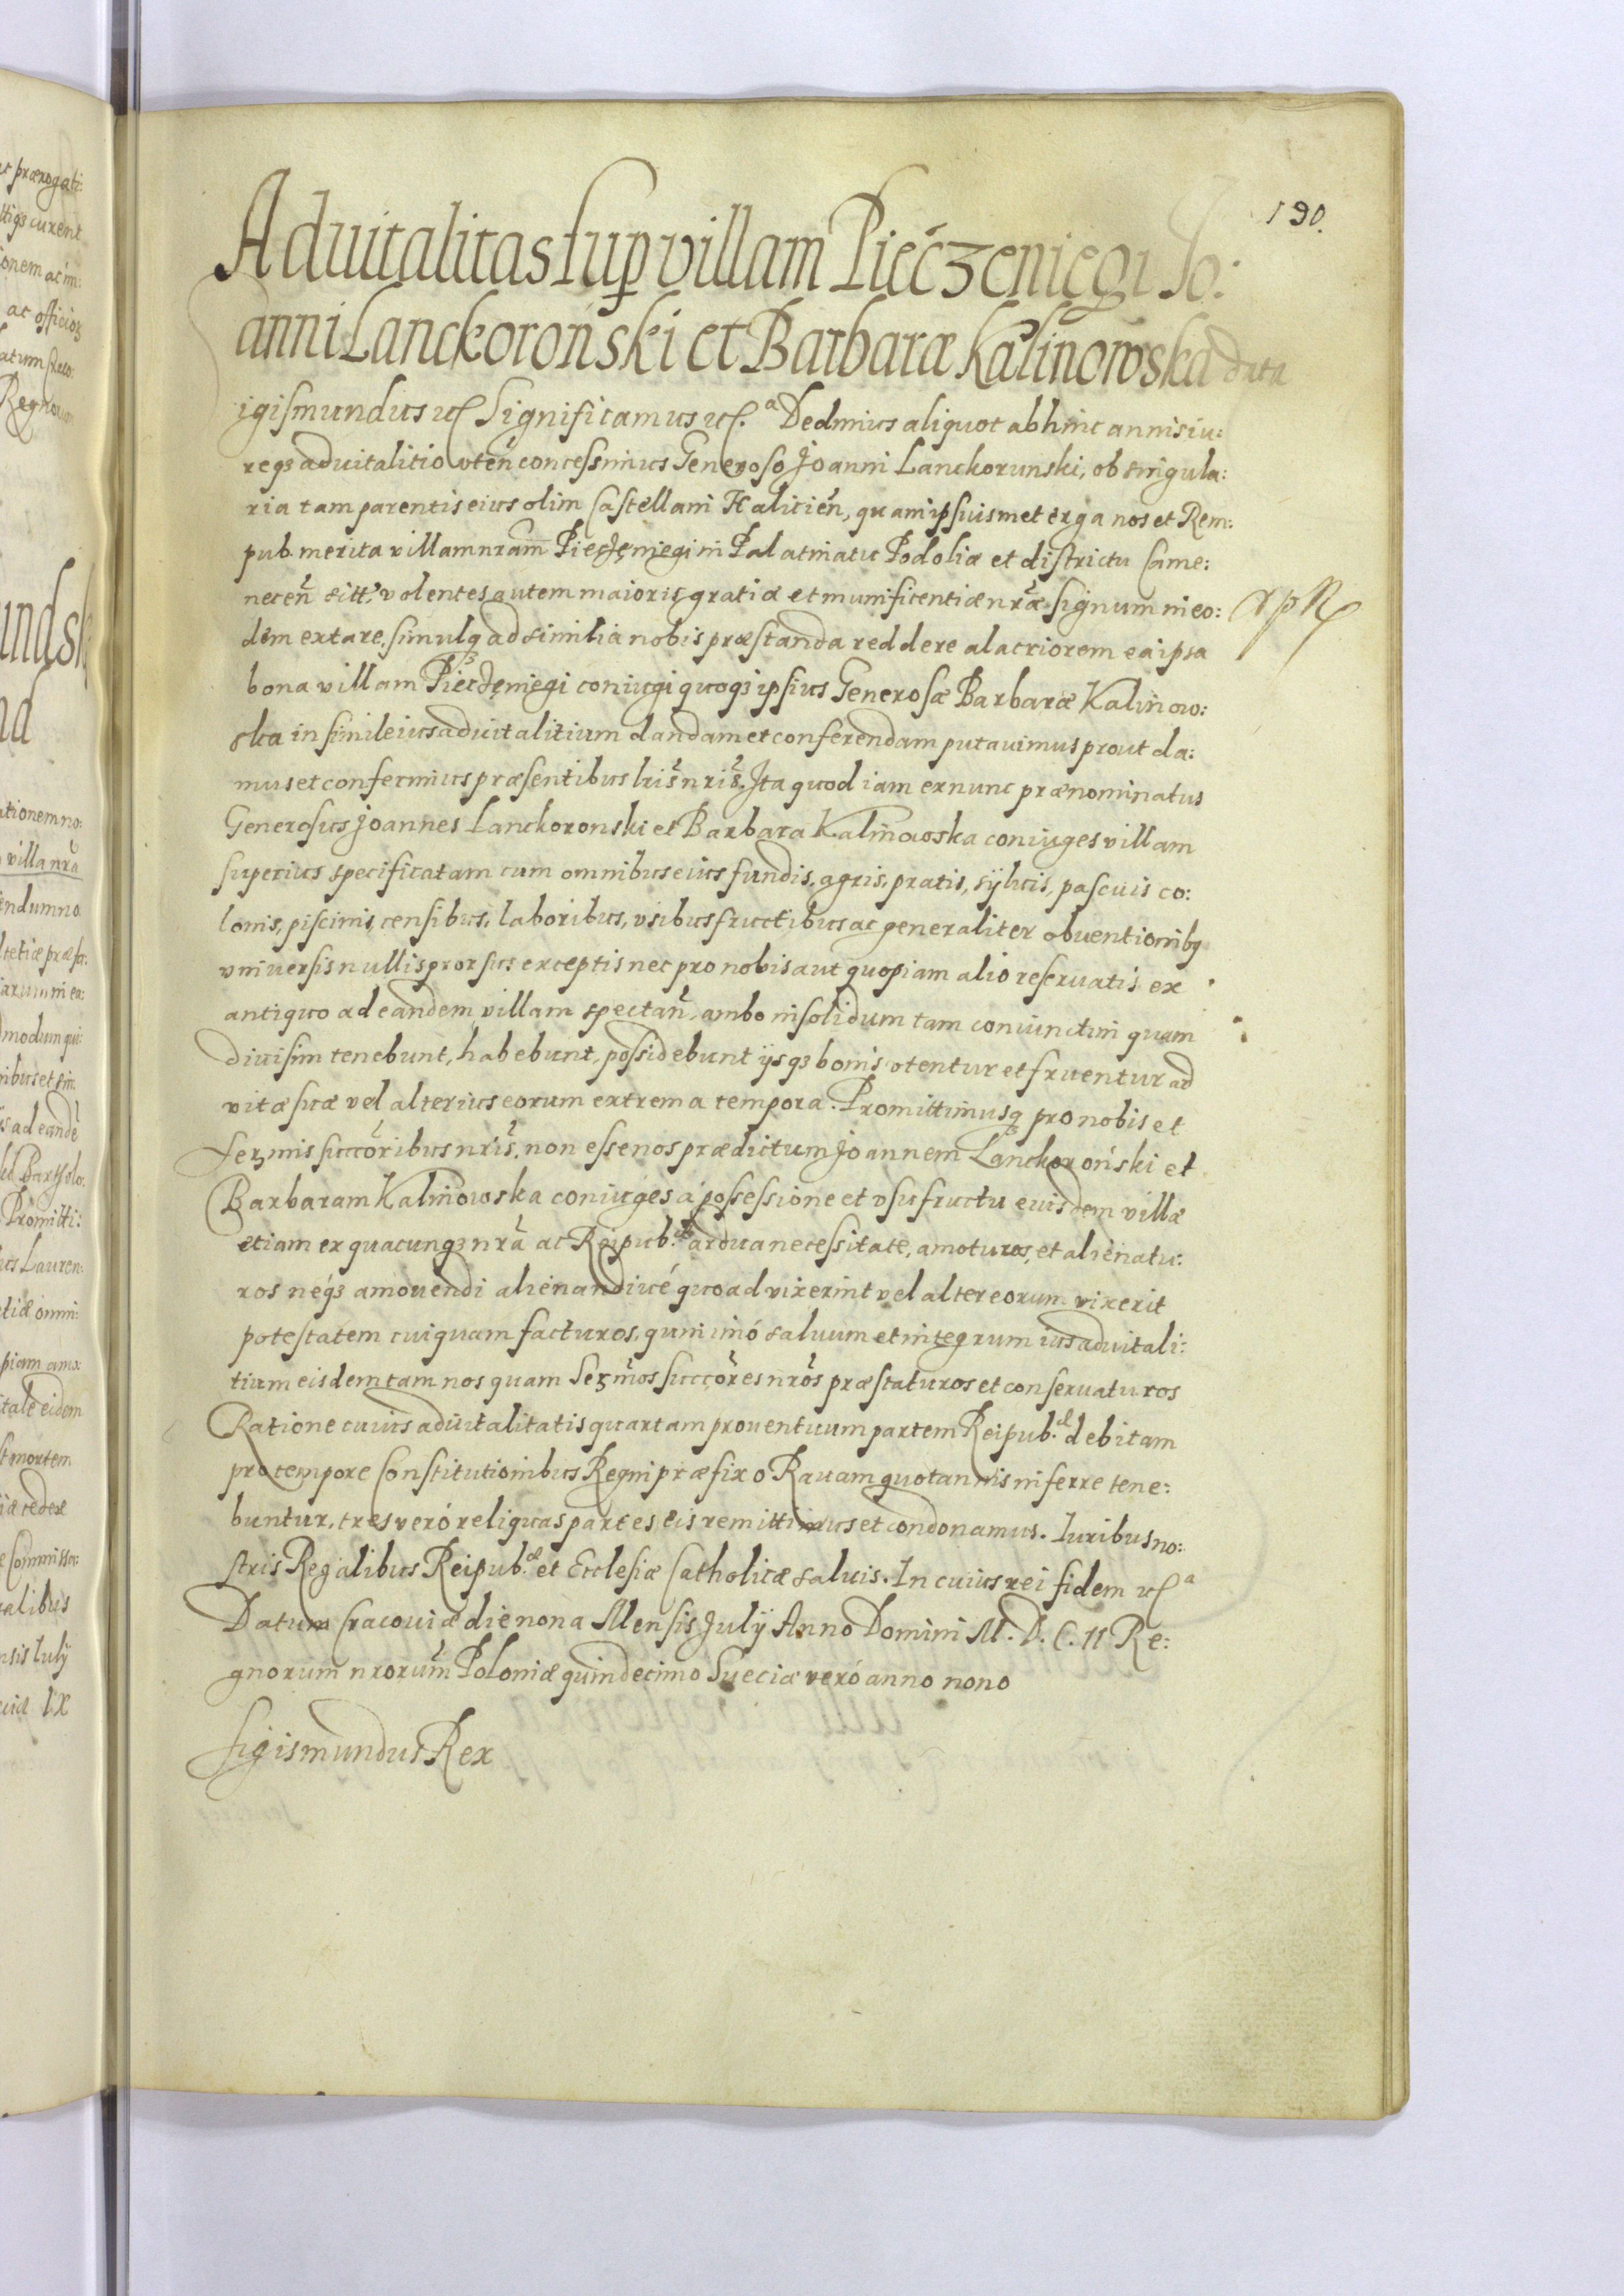 190.
Aduitalitas sup villam Piećzeniegi Jo:
anni Lanckoroński et Barbaræ Kalinowska data
igismundus etc. Significamus etc.a Dedimus aliquot abhinc annis iu:
reqz aduitalitio vten̄ concessimus Generoso Joanni Lanckorunski, ob singula:
ria tam parentis eius olim Castellani Halicien̄, quam ipsiusmet erga nos et Rem:
pub. merita villam nram̄ Pieczeniegi in Palatinatu Podoliæ et districtu Came:
necen̄ sitt. volentes autem maioris gratiæ et munificentiæ nrǣ signum in eo:
dem extare, simulqz ad similia nobis præstanda reddere alacriorem ea ipsa
bona villam Pieczeniegi coniugi quoqz ipsius Generosæ Barbaræ Kalinow:
ska in simile ius aduitalitium dandam et conferendam putauimus prout da:
mus et conferimus præsentibus lris̄ nris̄. Ita quod iam ex nunc prænominatus
Generosus Joannes Lanckoronski et Barbara Kalinowska coniuges villam
superius specificatam cum omnibus eius fundis, agris, pratis, sÿluis, pascuis co:
lonis, piscinis, censibus, laboribus, vsibus fructibus ac generaliter obuentionibq
vniuersis nullis prorsus exceptis nec pro nobis aut quopiam alio reseruatis ex
antiquo ad eandem villam spectan̄, ambo insolidum tam coniunctim quam
diuisim tenebunt, habebunt, possidebunt ijsqz bonis vtentur et fruentur ad
vitæ suæ vel alterius eorum extrema tempora. Promittimusqz pro nobis et
Serm̄is succōribus nris̄, non esse nos prædictum Joannem Lanckoroński et
Barbaram Kalinowska coniuges à possessione et vsufructu eiusdem villæ
etiam ex quacunqz nrā ac Reipub.cæ ardua necessitate, amoturos, et alienatu:
ros neqz amouendi alienandiué quoad vixerint vel alter eorum vixerit
potestatem cuiquam facturos, quin imó saluum et integrum ius aduitali:
tium eisdem tam nos quam Serm̄os succōres nrōs præstaturos et conseruaturos
Ratione cuius aduitalitatis quartam prouentuum partem Reipub.æ debitam
pro tempore Constitutionibus Regni præfixo Rauam quotannis inferre tene:
buntur, tres veró reliquas partes eis remittimus et condonamus. Iuribus no:
stris Regalibus Reipub.æ et Ecclesiæ Catholicæ saluis. In cuius rei fidem etc.a
Datum Cracouiæ die nona Mensis Julÿ Anno Domini M. D. C. II Re:
gnorum nrorum̄ Poloniæ quindecimo Sueciæ veró anno nono
Sigismundus Rex